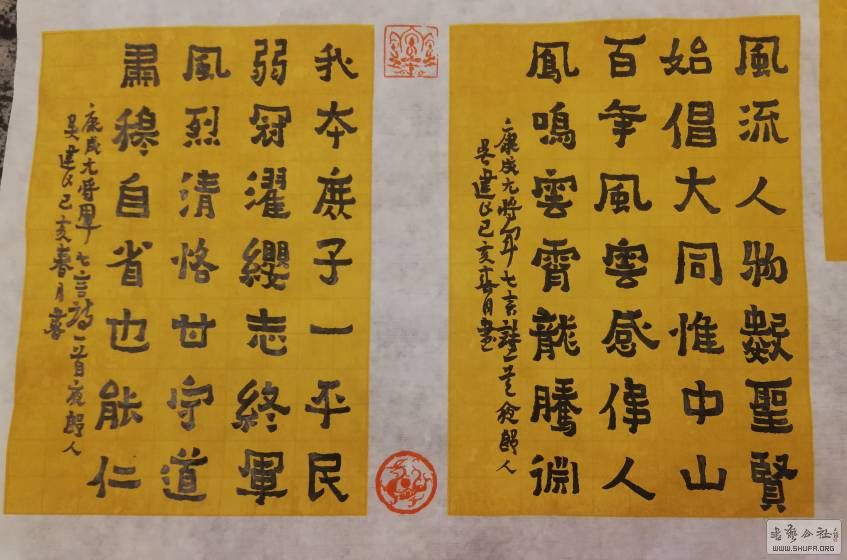 風流人物數聖賢
始倡大同惟中山
百年風雲感偉人
鳳鳴雲霄龍騰淵
康成元将軍七言詩一首夜郎人
吴建 己亥春月書
我本庶子一平民
弱冠濯纓志終軍
風烈清恪甘守道
肅穆自省也能仁
康成元将軍七言詩一首夜郎人
吴建 己亥春月書
书艺公社
WWW.SHUFA.ORG